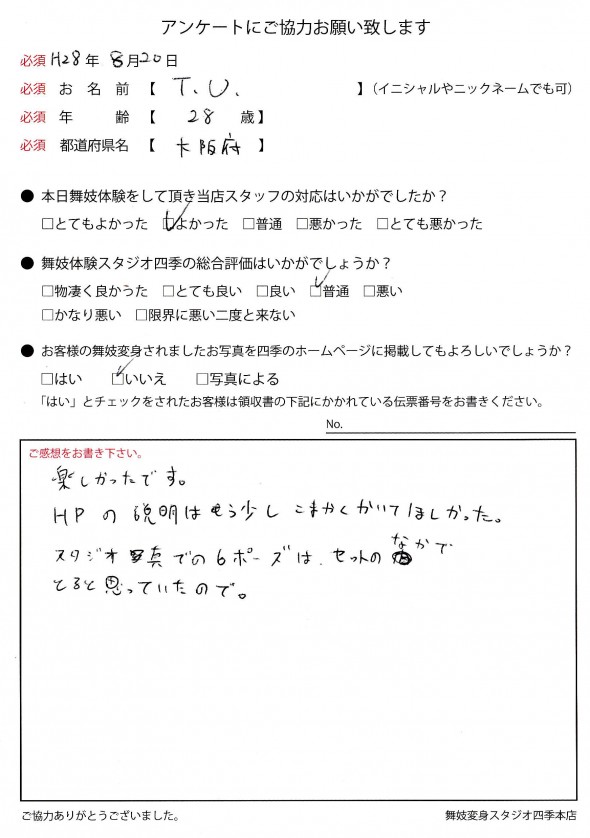 アンケートにご協力お願い致します
必須 H28年 8月20日
必須 お名前 【 T.U. 】（イニシャルやニックネームでも可）
必須 年齢 【 28 歳】
必須 都道府県名 【 大阪府 】
● 本日舞妓体験をして頂き当店スタッフの対応はいかがでしたか？
□とてもよかった ☑よかった □普通 □悪かった □とても悪かった
● 舞妓体験スタジオ四季の総合評価はいかがでしょうか？
□物凄く良かうた □とても良い □良い ☑普通 □悪い
□かなり悪い □限界に悪い二度と来ない
● お客様の舞妓変身されましたお写真を四季のホームページに掲載してもよろしいでしょうか？
□はい ☑いいえ □写真による
「はい」とチェックをされたお客様は領収書の下記にかかれている伝票番号をお書きください。
No.
ご感想をお書き下さい。
楽しかったです。
HPの説明はもう少しこまかくかいてほしかった。
スタジオ写真での6ポーズは、セットのなかで
とると思っていたので。
ご協力ありがとうございました。
舞妓変身スタジオ四季本店